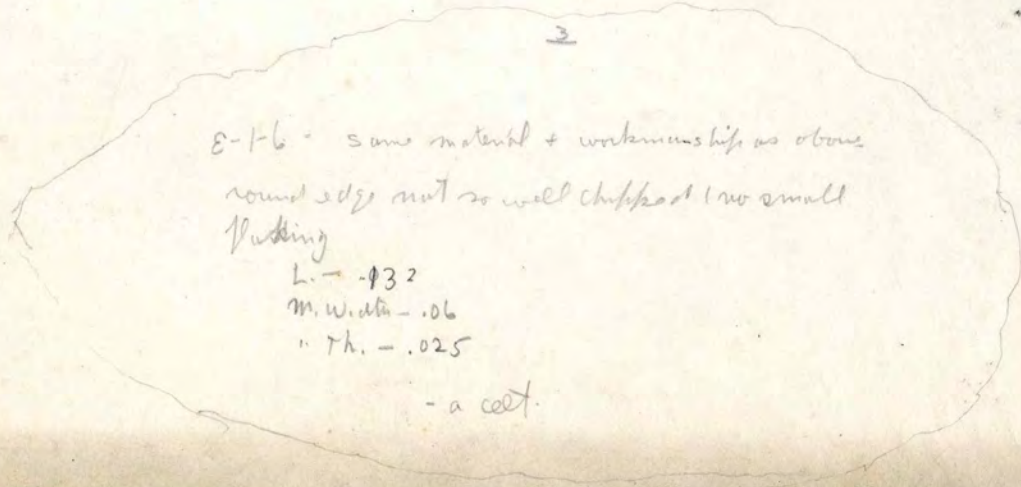 3
E-1-6 - same material + workmanship as above
round edge not so well chipped (no small
flaking
L. - .132
M. Width - .06
" Th. - .025
- a celt.